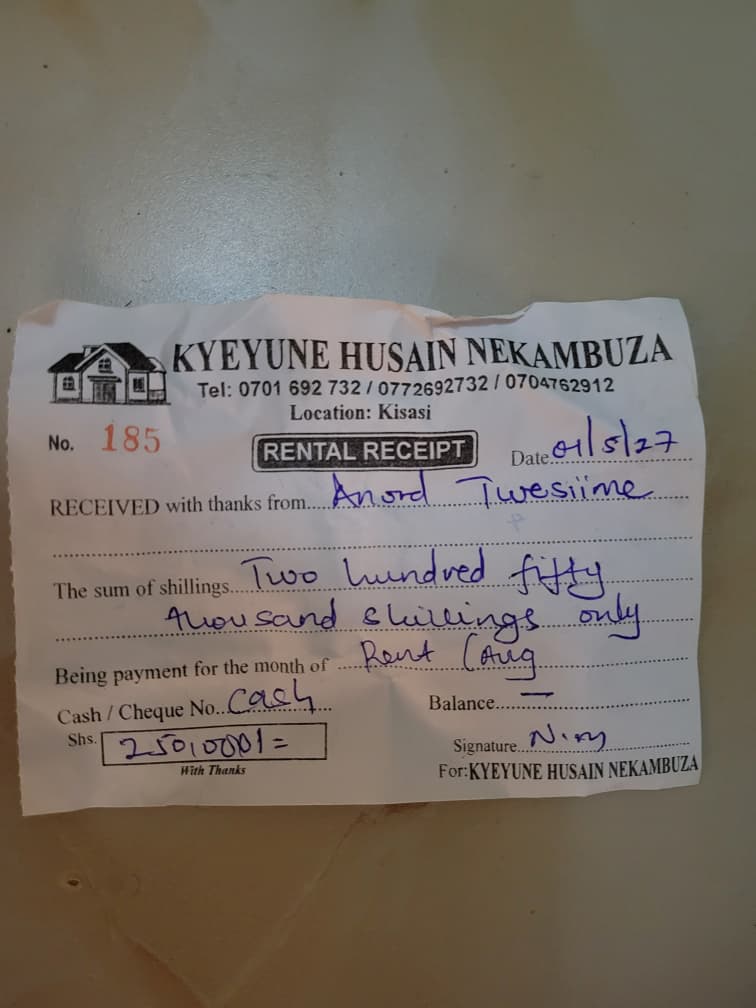 KYEYUNE HUSAIN NEKAMBUZA
Tel: 0701 692 732 / 0772692732 / 0704762912
Location: Kisasi
No. 185 RENTAL RECEIPT Date 01/5/27
RECEIVED with thanks from Anord Twesiime
The sum of shillings Two hundred fifty
thousand shillings only
Being payment for the month of Rent (Aug
Cash / Cheque No. Cash Balance —
Shs. 250,000/= Signature
With Thanks For: KYEYUNE HUSAIN NEKAMBUZA